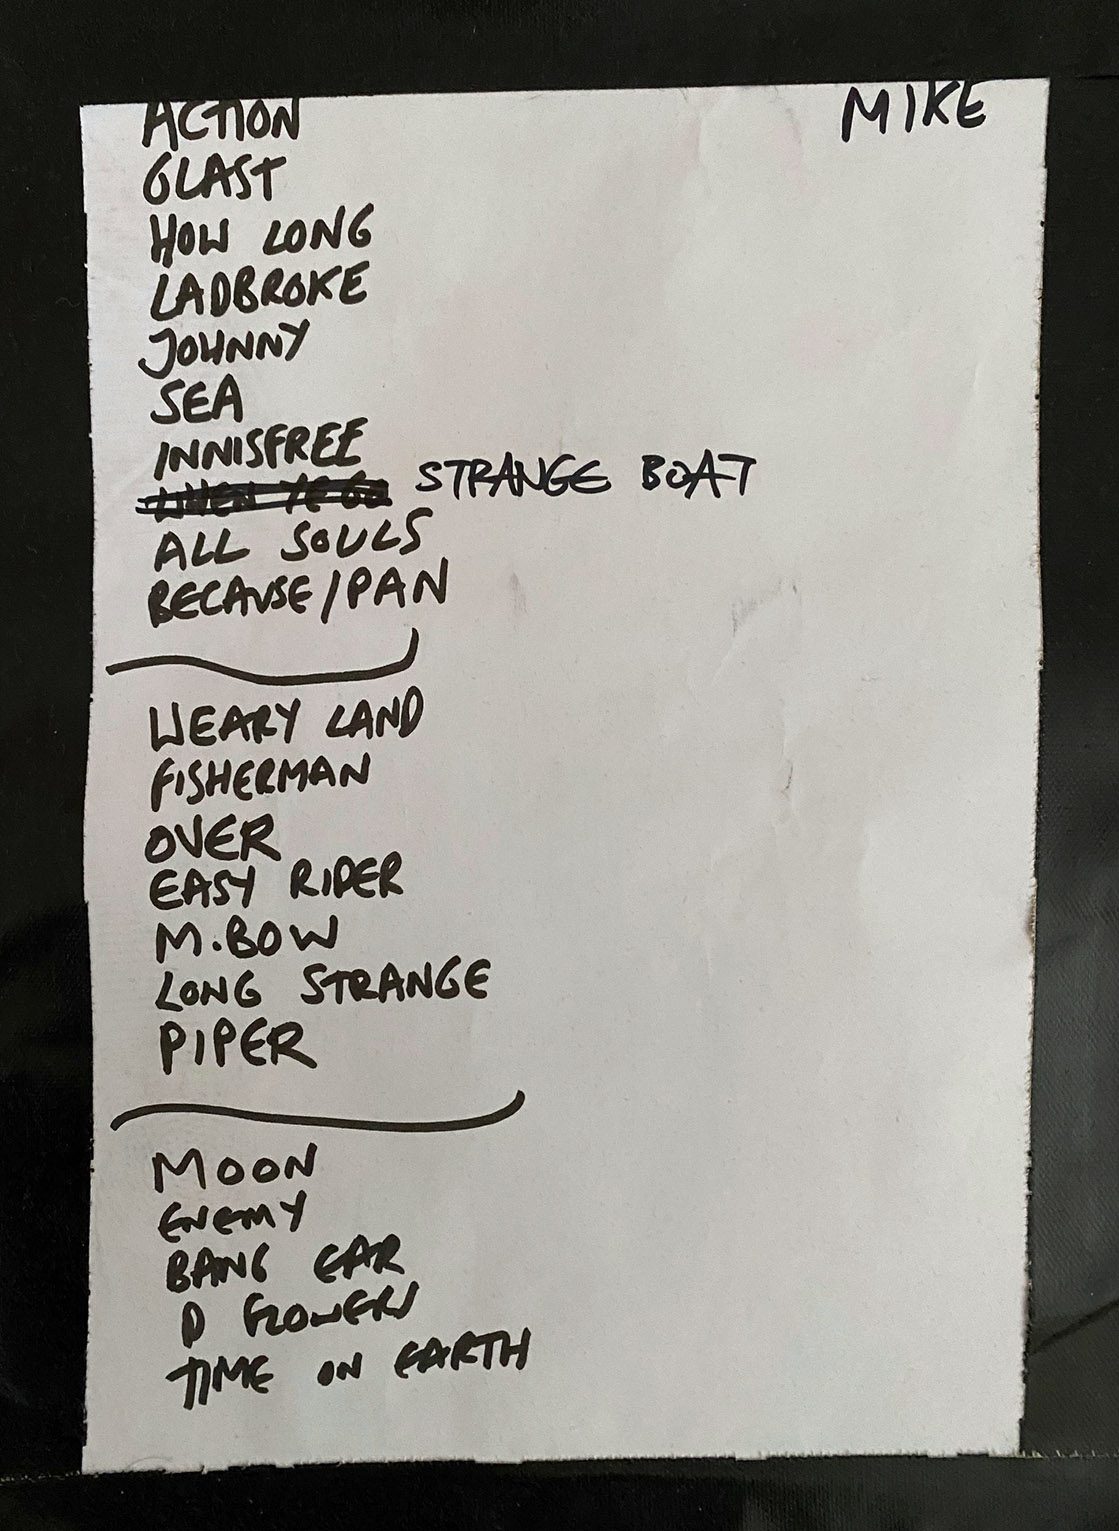 ACTION
MIKE
GLAST
HOW LONG
LADBROKE
JOHNNY
SEA
INNISFREE
WHEN YE GO STRANGE BOAT
ALL SOULS
BECAUSE/PAN
WEARY LAND
FISHERMAN
OVER
EASY RIDER
M.BOW
LONG STRANGE
PIPER
MOON
ENEMY
BANG EAR
D FLOWERS
TIME ON EARTH